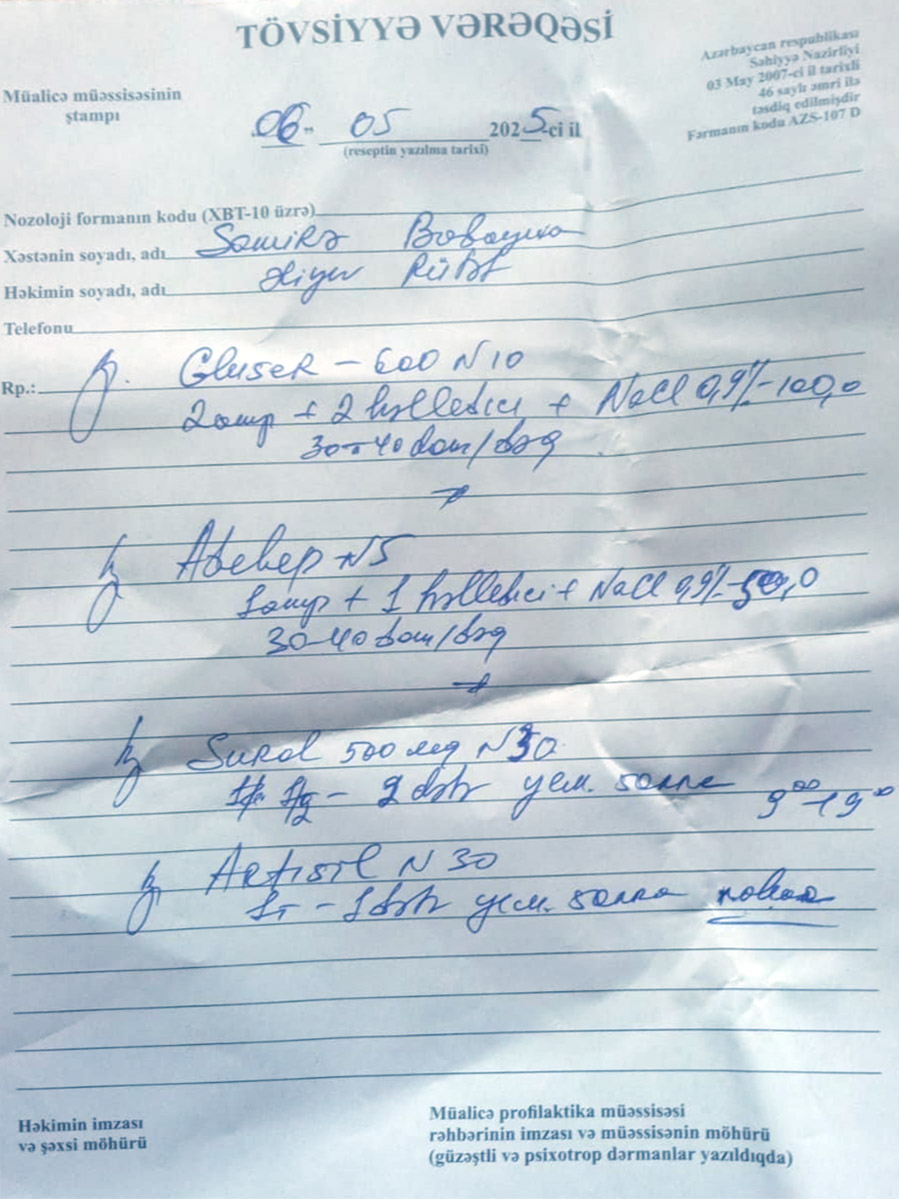 TÖVSİYYƏ VƏRƏQƏSİ
Azərbaycan respublikası
Səhiyyə Nazirliyi
03 May 2007-ci il tarixli
46 saylı əmri ilə
təsdiq edilmişdir
Fərmanın kodu AZS-107 D
Müalicə müəssisəsinin
ştampı
06- 05 2025-ci il
(reseptin yazılma tarixi)
Nozoloji formanın kodu (XBT-10 üzrə)
Xəstənin soyadı, adı Samirə
Həkimin soyadı, adı
Telefonu
Rp.: Gluser - 600 N10
2 amp + 2 həlledici + NaCl 0,9% - 100,0
30-40 dam/dəq
N5
1 amp + 1 həlledici + NaCl 0,9% - 50,0
30-40 dam/dəq
Sural 500 мg N30
- 2 dəf yem. sonra 9⁰⁰ 19⁰⁰
Artisil N 30
1т - 1 dəf yem. sonra
Həkimin imzası
və şəxsi möhürü
Müalicə profilaktika müəssisəsi
rəhbərinin imzası və müəssisənin möhürü
(güzəştli və psixotrop dərmanlar yazıldıqda)